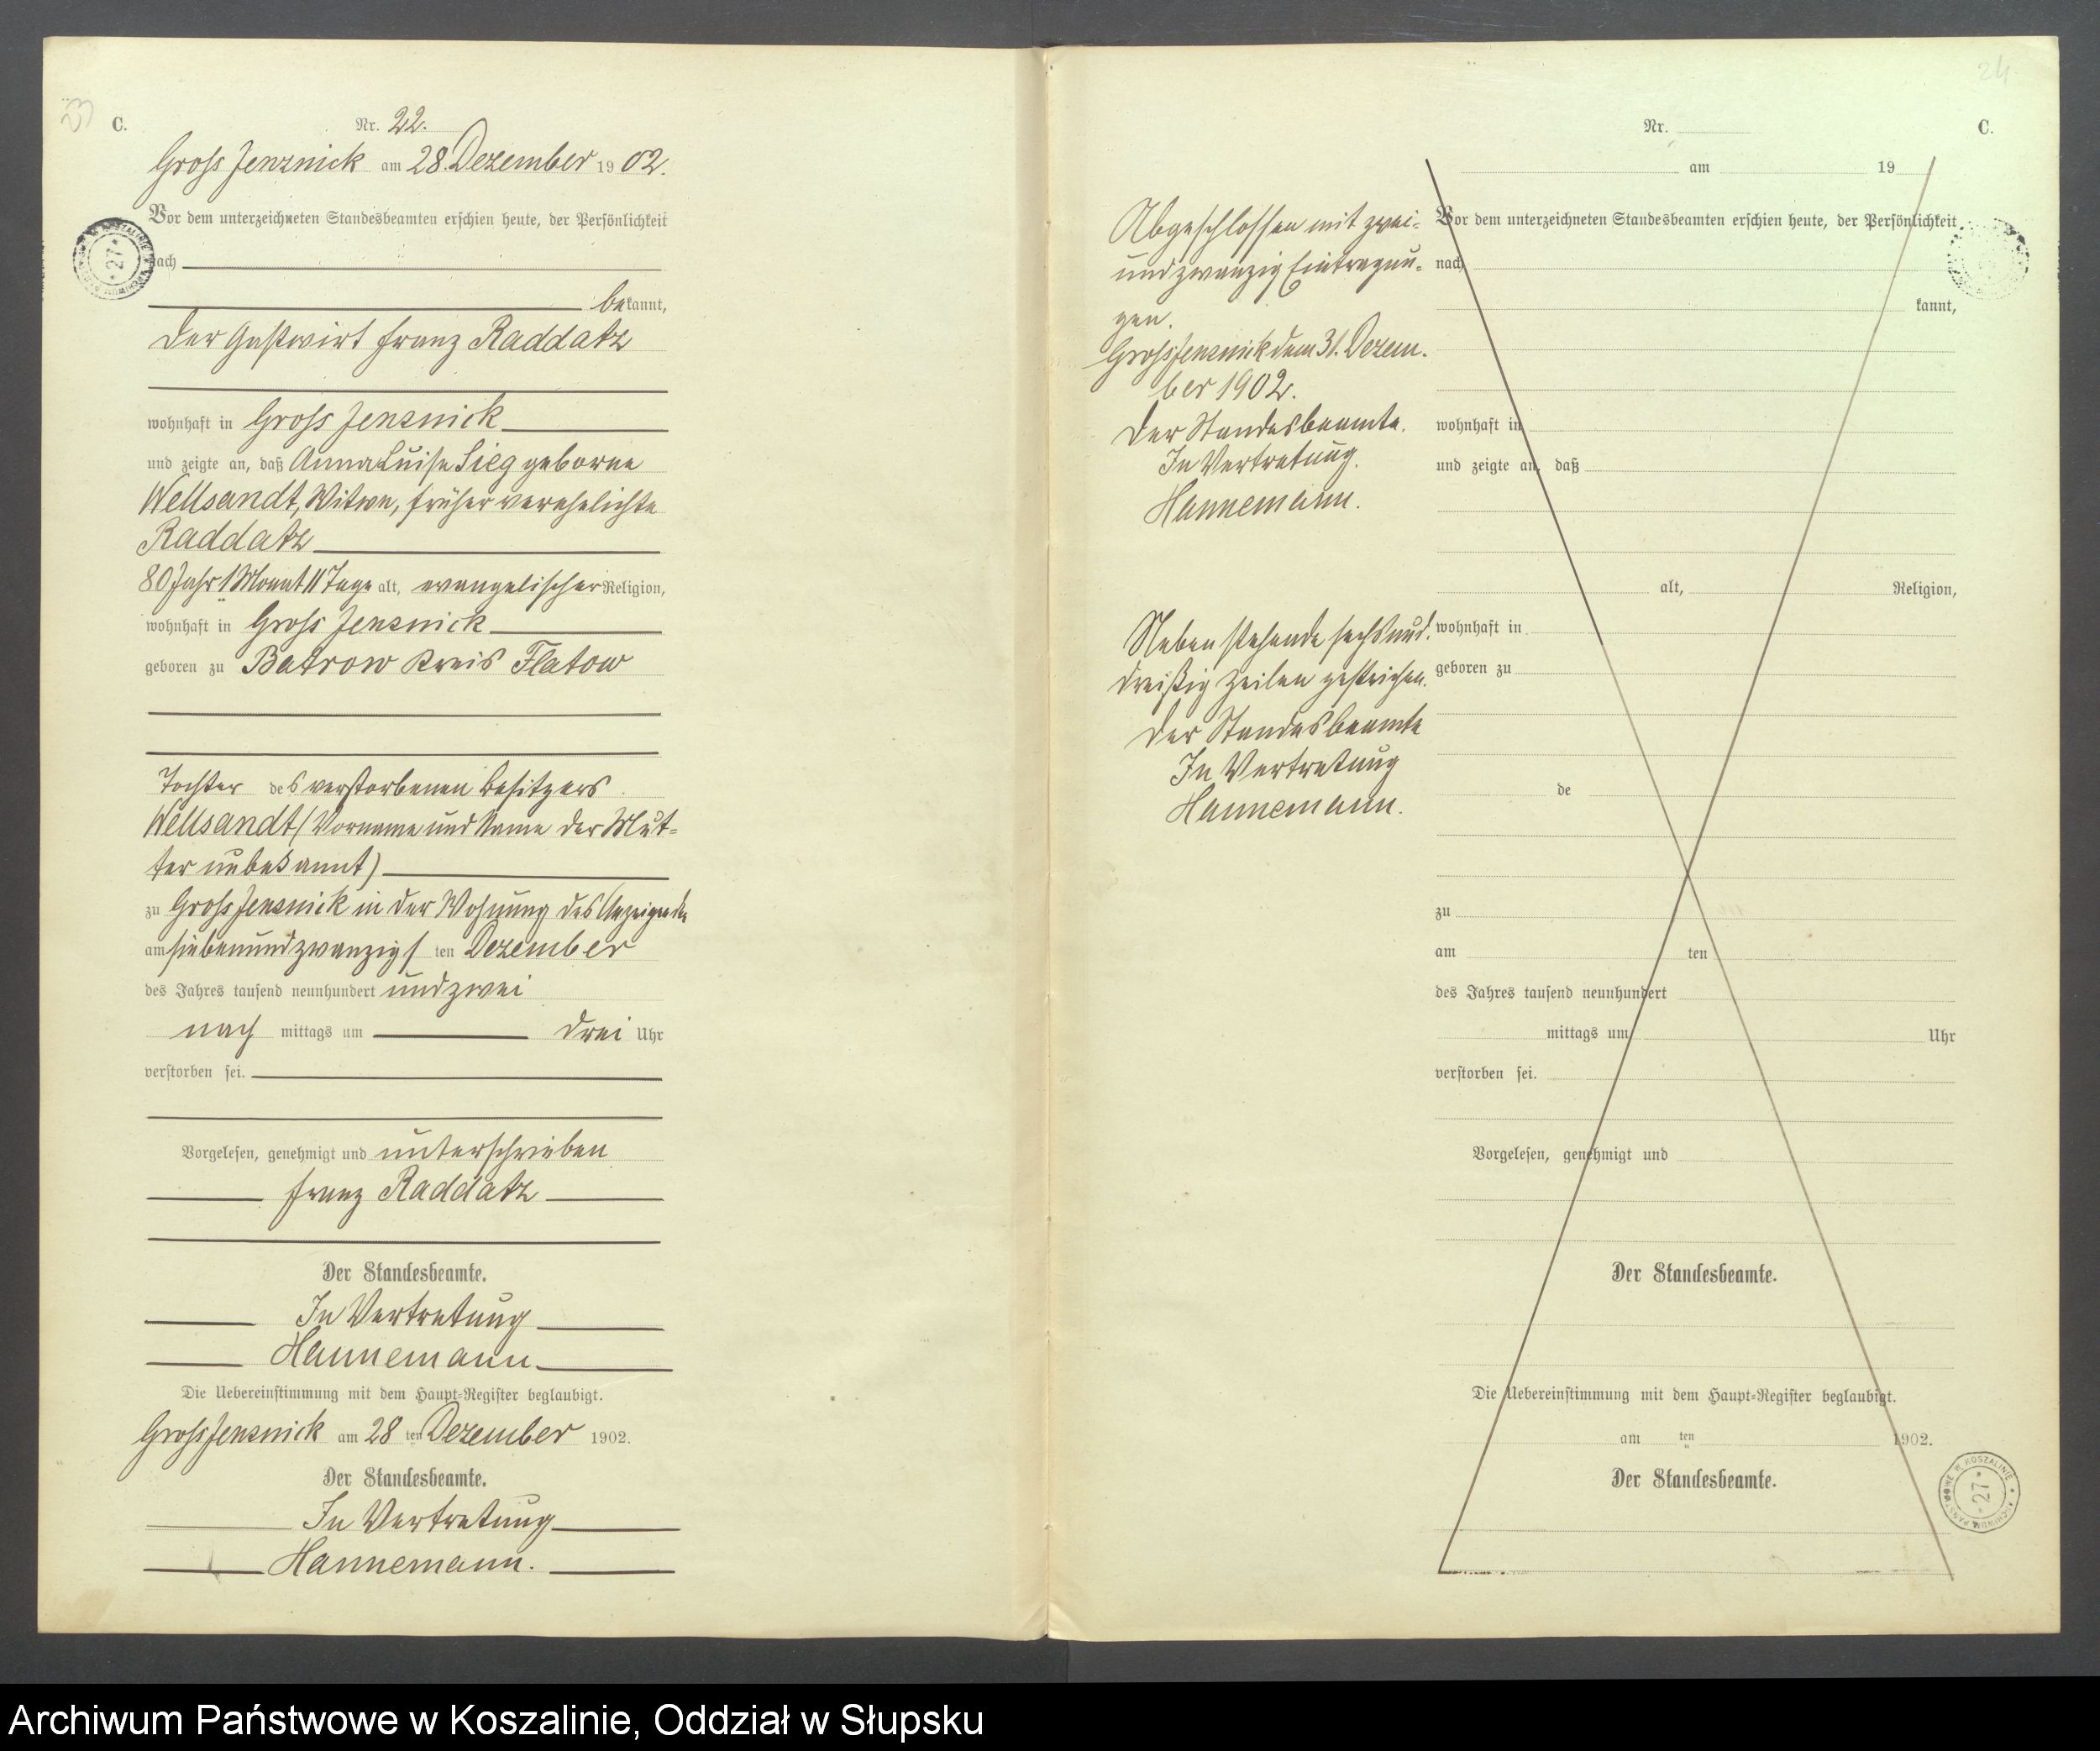 23
C.
Nr. 22.
Gross Jenznick am 28. Dezember 1902.
Vor dem unterzeichneten Standesbeamten erschien heute, der Persönlichkeit
nach
bekannt,
der Gastwirt Franz Raddatz
wohnhaft in Gross Jenznick
und zeigte an, daß Anna Luise Sieg geborne
Wellsandt, Witwe, früher verehelichte
Raddatz
80 Jahr 1 Monat 11 Tage alt, evangelischer Religion,
wohnhaft in Gross Jenznick
geboren zu Batrow Kreis Flatow
Tochter des verstorbenen Besitzers
Wellsandt (Vorname und Name der Mut-
ter unbekannt)
zu Gross Jenznick in der Wohnung des Anzeigenden
am siebenundzwanzigsten Dezember
des Jahres tausend neunhundert und zwei
nach mittags um drei Uhr
verstorben sei.
Vorgelesen, genehmigt und unterschrieben
Franz Raddatz
Der Standesbeamte.
In Vertretung
Hannemann.
Die Uebereinstimmung mit dem Haupt-Register beglaubigt.
Gross Jenznick am 28 ten Dezember 1902.
Der Standesbeamte.
In Vertretung
Hannemann.
24
Nr.
C.
am 19
Abgeschlossen mit zwei-
und zwanzig Eintragun-
gen.
Gross Jenznick dem 31. Dezem-
ber 1902.
Der Standesbeamte.
In Vertretung.
Hannemann.
Nebenstehende sechsund-
dreißig Zeilen gestrichen.
Der Standesbeamte
In Vertretung
Hannemann.
Vor dem unterzeichneten Standesbeamten erschien heute, der Persönlichkeit
nach
kannt,
wohnhaft in
und zeigte an, daß
alt, Religion,
wohnhaft in
geboren zu
de
zu
am ten
des Jahres tausend neunhundert
mittags um Uhr
verstorben sei.
Vorgelesen, genehmigt und
Der Standesbeamte.
Die Uebereinstimmung mit dem Haupt-Register beglaubigt.
am ten 1902.
Der Standesbeamte.
ARCHIWUM PAŃSTWOWE W KOSZALINIE * 27 *
Archiwum Państwowe w Koszalinie, Oddział w Słupsku